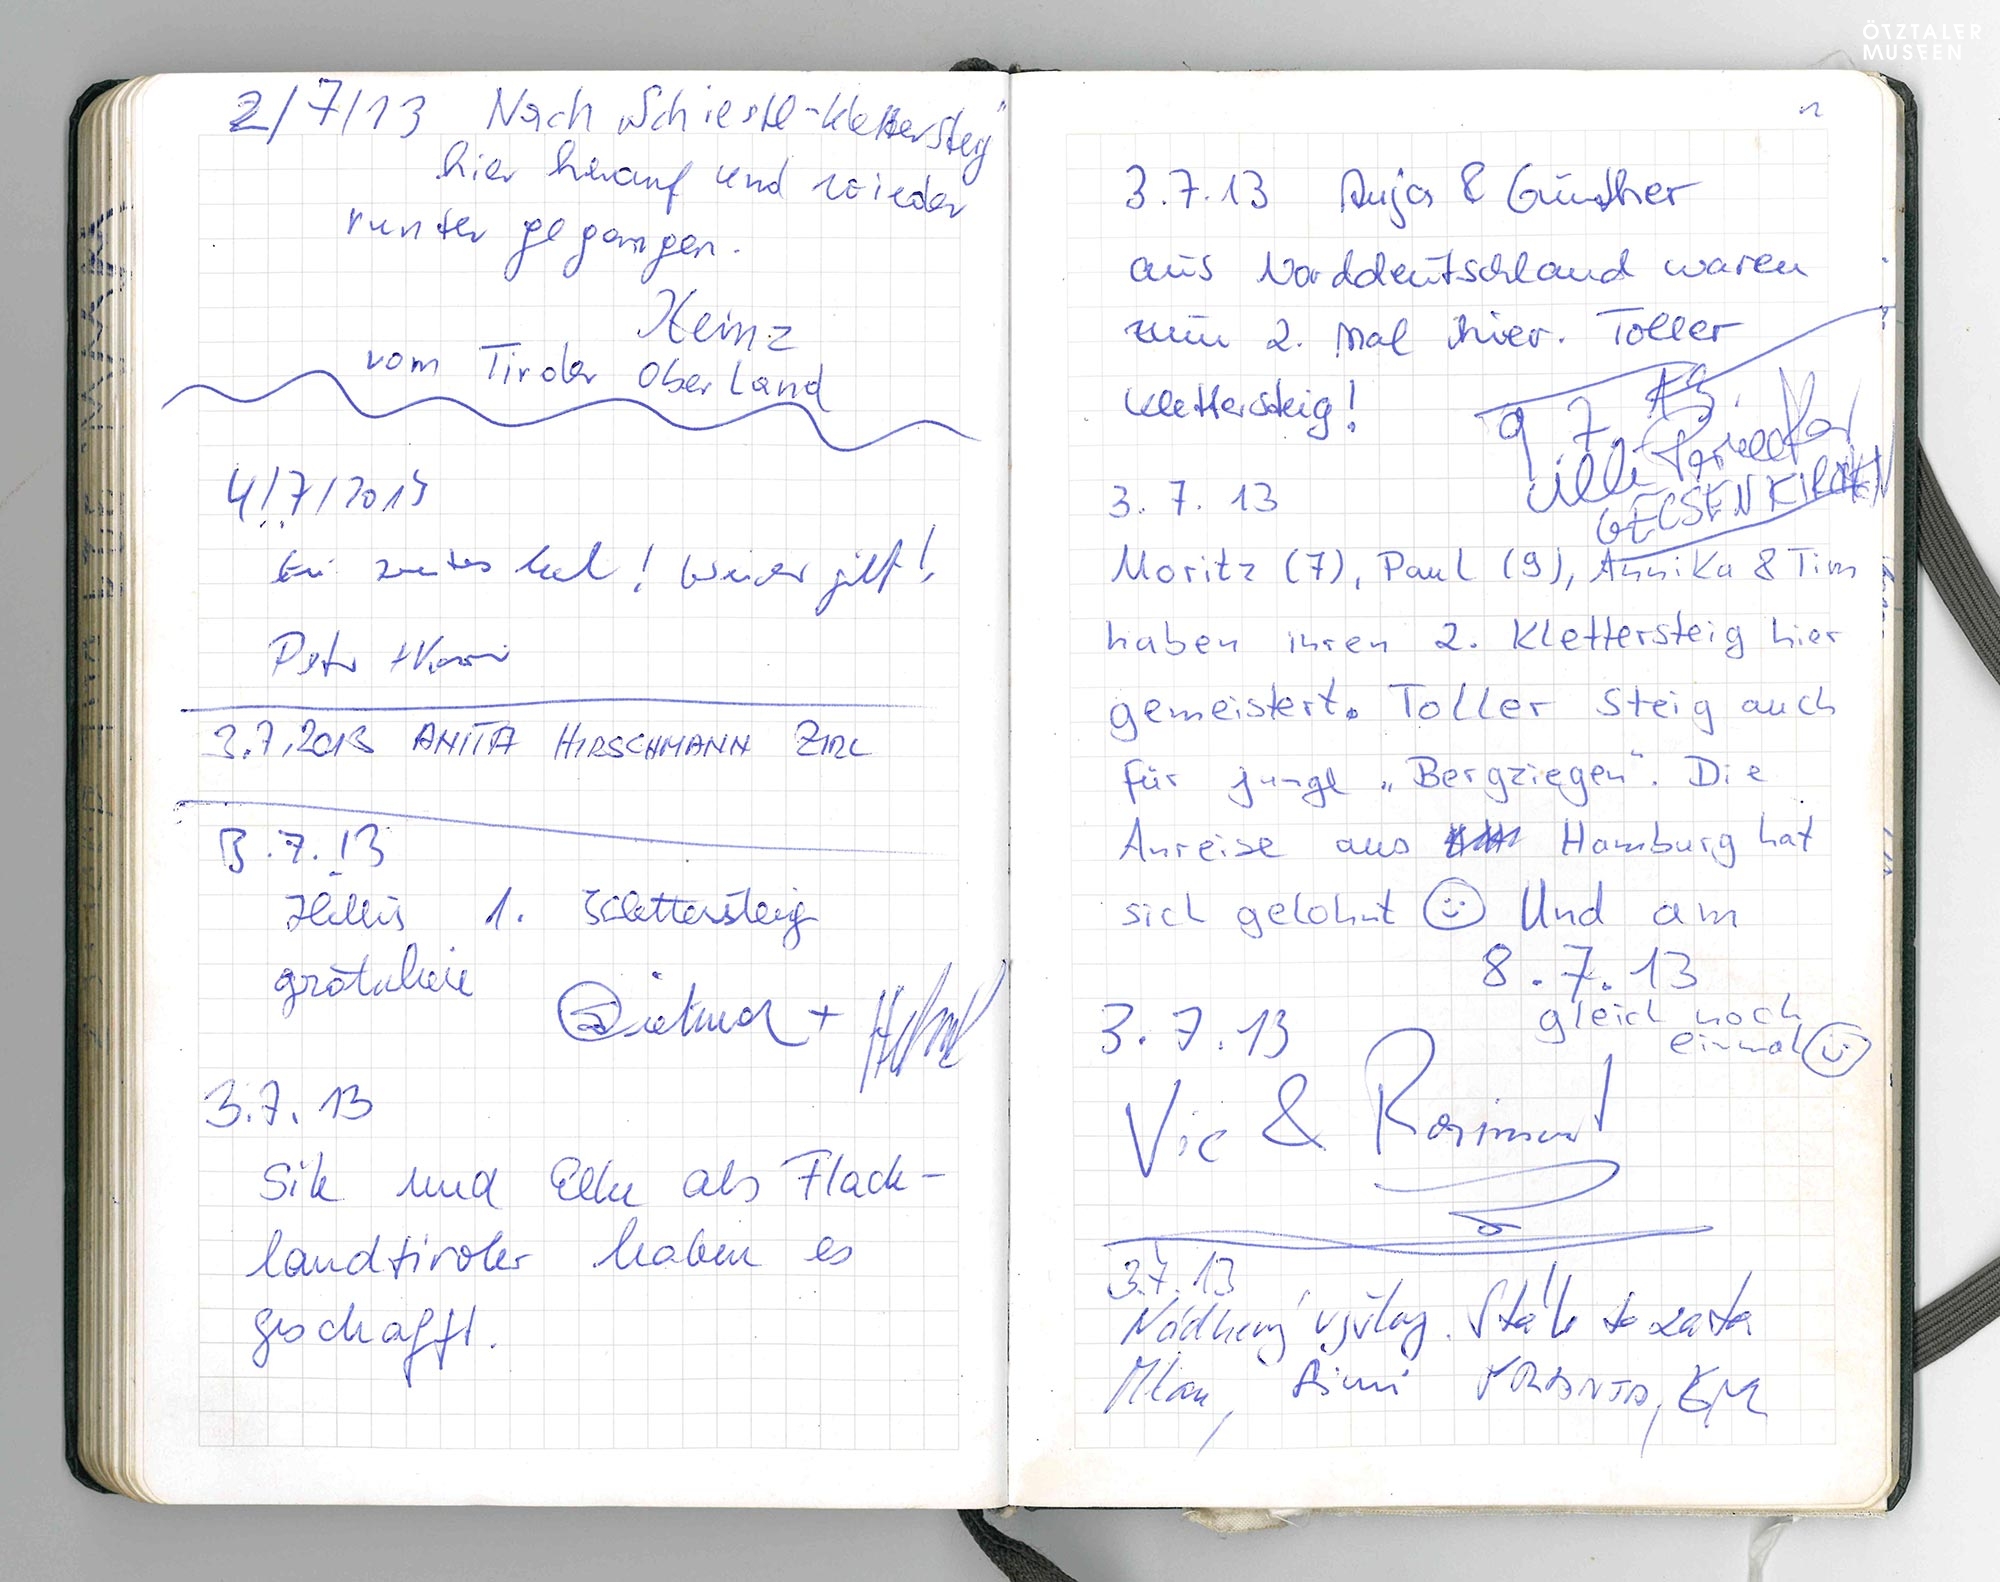 ÖTZTALER
MUSEEN
2/7/13 Nach „Schiestl-Klettersteig"
hier herauf und wieder
runter gegangen.
Heinz
vom Tiroler Oberland
4/7/2013
Ein zweites Mal! Wieder
Peter
3.7.2013 ANITA HIRSCHMANN ZIRL
3.7.13
1. Klettersteig
Dietmar +
3.7.13
und Elke als Flach-
landtiroler haben es
geschafft.
3.7.13 Anja & Günther
aus Norddeutschland waren
zum 2. Mal hier. Toller
Klettersteig!
9 7 13.
Willi
GELSENKIRCHEN
3.7.13
Moritz (7), Paul (9), Annika & Tim
haben ihren 2. Klettersteig hier
gemeistert. Toller Steig auch
für junge „Bergziegen". Die
Anreise aus Hamburg hat
sich gelohnt ☺ Und am
8.7.13
gleich noch
einmal ☺
3.7.13
Vic &
3.7.13
Nádherný výstup. to za to
Milan,